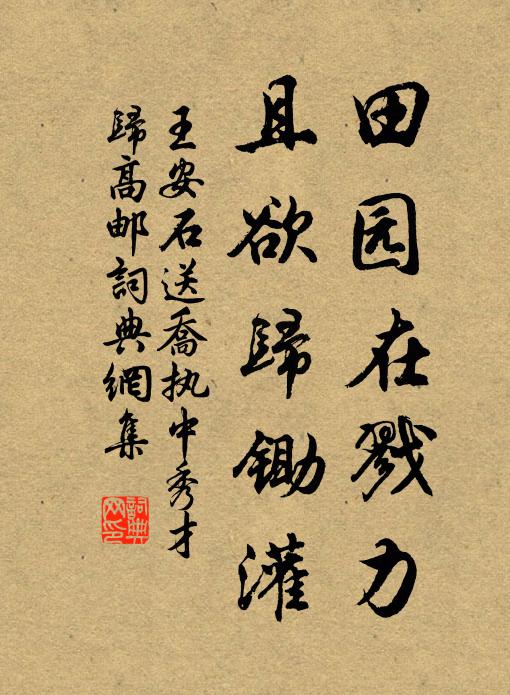 田园在戮力
且欲歸锄灌
王安石送喬执中秀才
歸高邮詞典網集
詞典网印